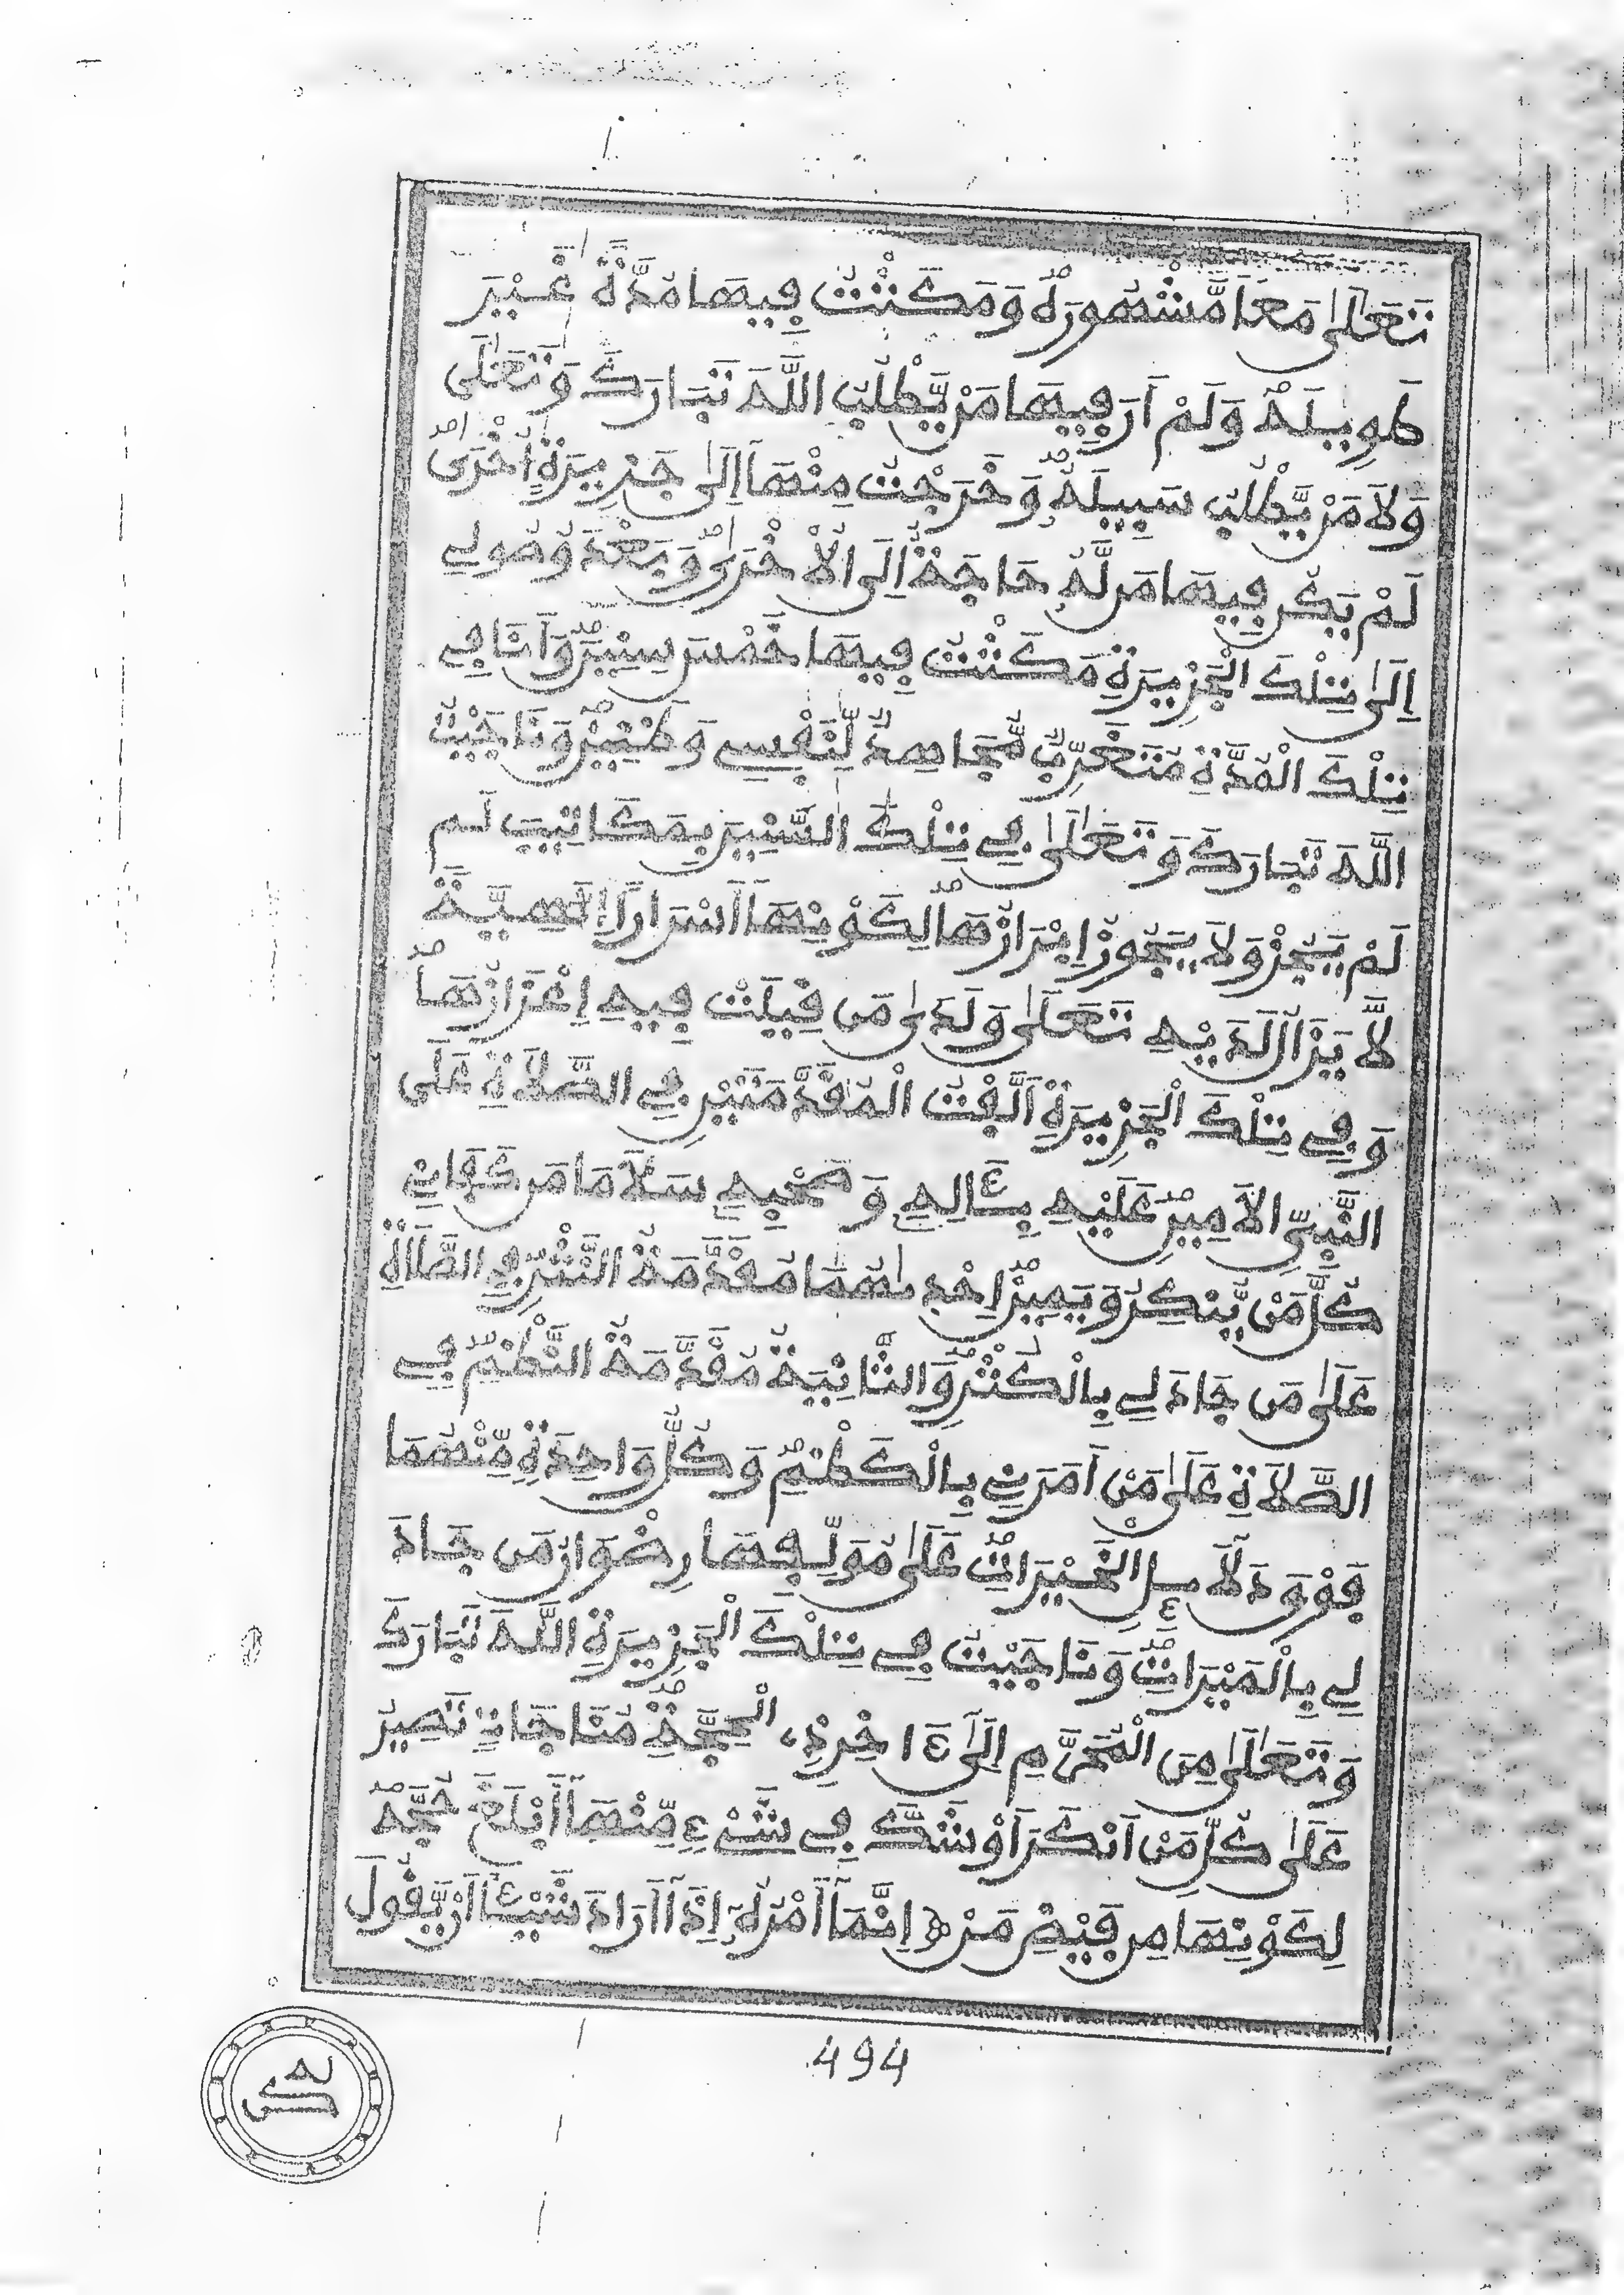 تَعَلَىٰ مَعَا مَّشْهُورَهٌ وَمَكَثْتُ فِيهَا مُدَّةً غَيْرَ
طَوِيلَهٌ وَلَمْ أَرَ فِيهَا مَنْ يَّطْلُبُ اللَّهَ تَبَارَكَ وَتَعَلَىٰ
وَلَا مَنْ يَّطْلُبُ سَبِيلَهُ وَخَرَجْتُ مِنْهَا إِلَىٰ جَزِيرَةٍ أُخْرَىٰ
لَمْ يَكُن فِيهَا مَن لَّهُ حَاجَةٌ إِلَى الْأُخْرَىٰ وَبَعْدَ وُصُولِي
إِلَىٰ تِلْكَ الْجَزِيرَةِ مَكَثْتُ فِيهَا خَمْسَ سِنِينَ وَأَنَا فِي
تِلْكَ الْمُدَّةِ مُتَغَرِّبٌ مُّجَاهِدٌ لِّنَفْسِي وَطِينِينْ وَنَاجَيْتُ
اللَّهَ تَبَارَكَ وَتَعَلَىٰ فِي تِلْكَ السِّنِينَ بِمَكَاتِيبَ لَم
لَمْ يَجُزْ وَلَا يَجُوزُ إِبْرَازُهَا لِكَوْنِهَا أَسْرَارًا إِلَٰهِيَّةً
لَّا يَزَالُ لَدَيْهِ تَعَلَىٰ وَلَدَىٰ مَن قِيلَتْ فِيهِ إِعْزَازُهَا
وَفِي تِلْكَ الْجَزِيرَةِ أَلَّفْتُ الْمُقَدِّمَتَيْنِ فِي الصَّلَاةِ عَلَى
النَّبِيِّ الْأَمِينْ عَلَيْهِ بِـَٔالِهِ وَصَحْبِهِ سَلَامَا مَن كَفَانِي
كُلَّ مَنْ يُّنْكِرُ وَيَمِينْ إِحْدٰىهُمَا مُقَدِّمَةُ النَّثْرِ فِي الصَّلَاةِ
عَلَىٰ مَن جَادَ لِي بِالْكَثْرِ وَالثَّانِيَةُ مُقَدِّمَةُ النَّظْمِ فِي
الصَّلَاةِ عَلَىٰ مَنْ أَمَرَنِي بِالْكَظْمِ وَكُلُّ وَاحِدَةٍ مِّنْهُمَا
فَوْقَ دَلَآئِلِ الْخَيْرَاتْ عَلَىٰ مُؤَلِّفِهَا رِضْوَانُ مَن جَادَ
لِي بِالْمَيْرَاتْ وَنَاجَيْتُ فِي تِلْكَ الْجَزِيرَةِ اللَّهَ تَبَارَكَ
وَتَعَلَىٰ مِنَ الْمُحَرَّمِ إِلَىٰ ءَاخِرِ ذِي الْحِجَّةِ مُنَاجَاةً تَصِيرُ
عَلَىٰ كُلِّ مَنْ أَنْكَرَ أَوْ شَكَّ فِي شَيْءٍ مِّنْهَا أَبْلَغَ حُجَّهْ
لِكَوْنِهَا مِن فَيْضِ مَنْ إِنَّمَا أَمْرُهُ إِذَا أَرَادَ شَيْـًٔا أَنْ يَّقُولَ
494